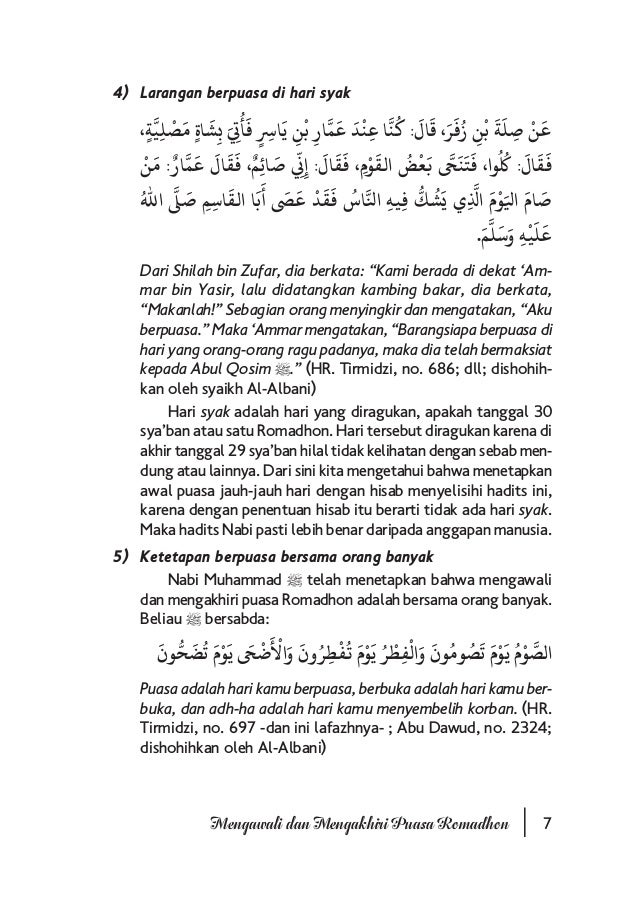 4) Larangan berpuasa di hari syak
عَنْ صِلَةَ بْنِ زُفَرَ، قَالَ: كُنَّا عِنْدَ عَمَّارِ بْنِ يَاسِرٍ فَأُتِيَ بِشَاةٍ مَصْلِيَّةٍ،
فَقَالَ: كُلُوا، فَتَنَحَّى بَعْضُ القَوْمِ، فَقَالَ: إِنِّي صَائِمٌ، فَقَالَ عَمَّارٌ: مَنْ
صَامَ اليَوْمَ الَّذِي يَشُكُّ فِيهِ النَّاسُ فَقَدْ عَصَى أَبَا القَاسِمِ صَلَّى اللهُ
عَلَيْهِ وَسَلَّمَ.
Dari Shilah bin Zufar, dia berkata: “Kami berada di dekat ‘Am-
mar bin Yasir, lalu didatangkan kambing bakar, dia berkata,
“Makanlah!” Sebagian orang menyingkir dan mengatakan, “Aku
berpuasa.” Maka ‘Ammar mengatakan, “Barangsiapa berpuasa di
hari yang orang-orang ragu padanya, maka dia telah bermaksiat
kepada Abul Qosim ﷺ.” (HR. Tirmidzi, no. 686; dll; dishohih-
kan oleh syaikh Al-Albani)
Hari syak adalah hari yang diragukan, apakah tanggal 30
sya’ban atau satu Romadhon. Hari tersebut diragukan karena di
akhir tanggal 29 sya’ban hilal tidak kelihatan dengan sebab men-
dung atau lainnya. Dari sini kita mengetahui bahwa menetapkan
awal puasa jauh-jauh hari dengan hisab menyelisihi hadits ini,
karena dengan penentuan hisab itu berarti tidak ada hari syak.
Maka hadits Nabi pasti lebih benar daripada anggapan manusia.
5) Ketetapan berpuasa bersama orang banyak
Nabi Muhammad ﷺ telah menetapkan bahwa mengawali
dan mengakhiri puasa Romadhon adalah bersama orang banyak.
Beliau ﷺ bersabda:
الصَّوْمُ يَوْمَ تَصُومُونَ وَالْفِطْرُ يَوْمَ تُفْطِرُونَ وَالْأَضْحَى يَوْمَ تُضَحُّونَ
Puasa adalah hari kamu berpuasa, berbuka adalah hari kamu ber-
buka, dan adh-ha adalah hari kamu menyembelih korban. (HR.
Tirmidzi, no. 697 -dan ini lafazhnya- ; Abu Dawud, no. 2324;
dishohihkan oleh Al-Albani)
Mengawali dan Mengakhiri Puasa Romadhon | 7